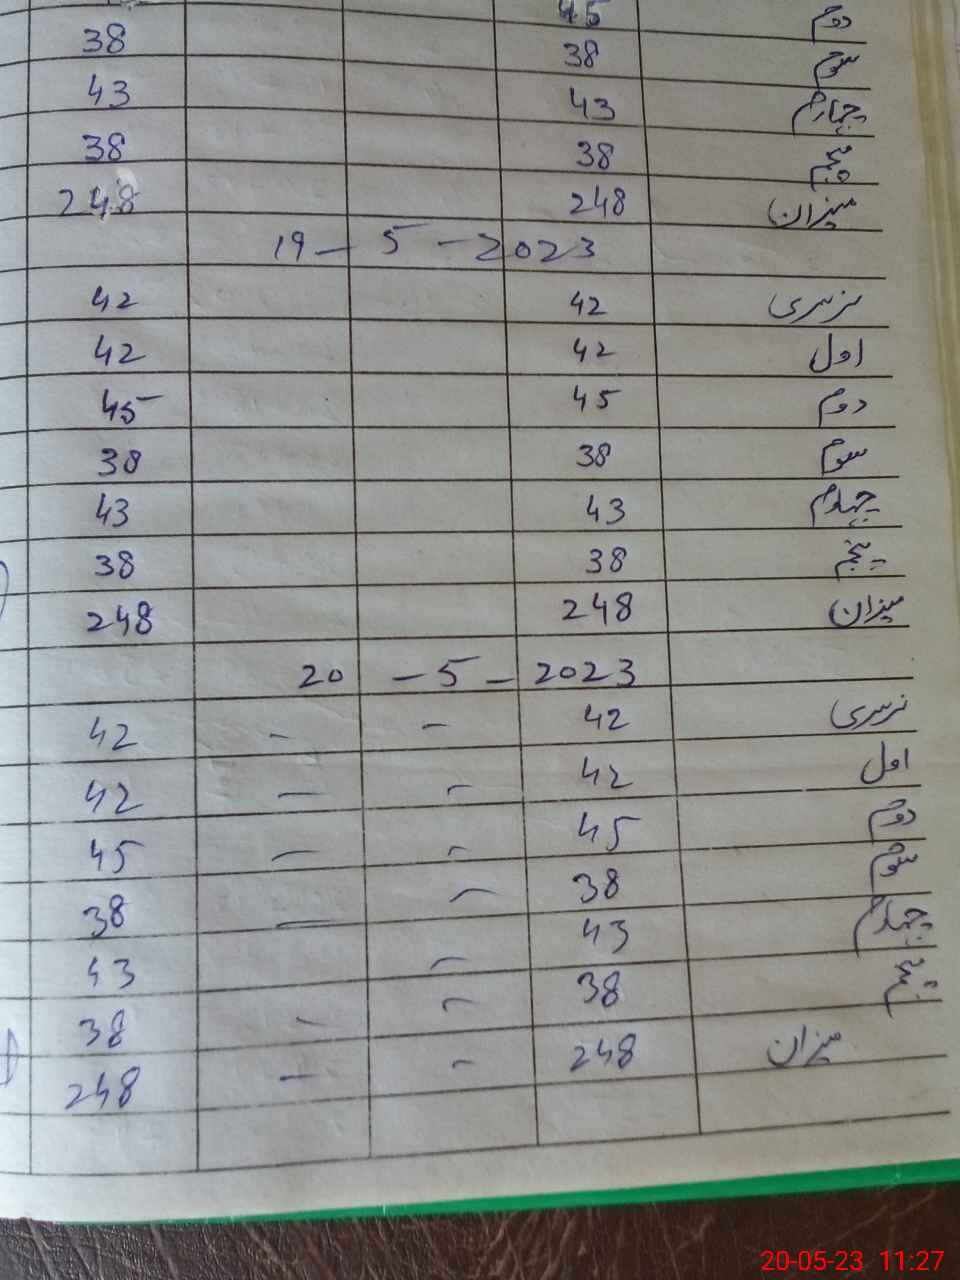 دوم 45
سوم 38 38
چہارم 43 43
پنجم 38 38
میزان 248 248
19 - 5 - 2023
نرسری 42 42
اول 42 42
دوم 45 45
سوم 38 38
چہارم 43 43
پنجم 38 38
میزان 248 248
20 - 5 - 2023
نرسری 42 - - 42
اول 42 - - 42
دوم 45 - - 45
سوم 38 - - 38
چہارم 43 - 43
پنجم 38 - - 38
میزان 248 - - 248
20-05-23 11:27